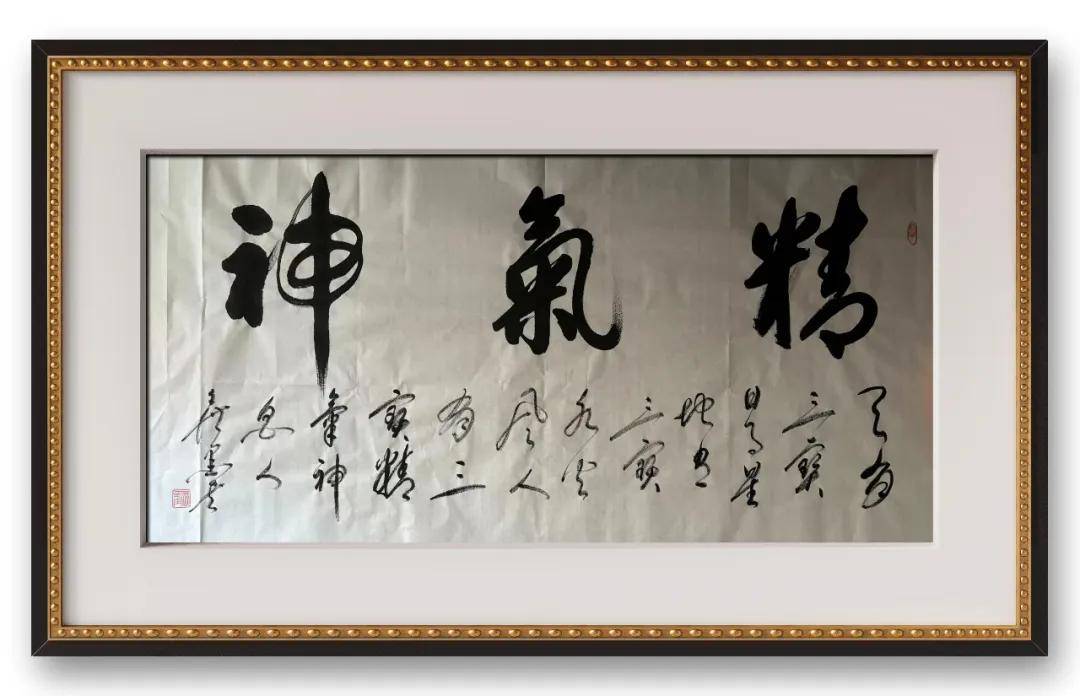 精氣神
天有
三寶
日月星
地有
三寶
水火
风人
有三
寶精
氣神